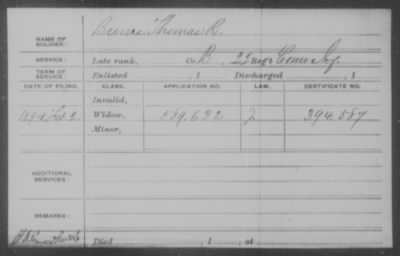 NAME OF SOLDIER: Thomas R.
SERVICE: Late rank, Co. B, 28 Reg't Inf.
TERM OF SERVICE: Enlisted , 1 Discharged , 1
DATE OF FILING. CLASS. APPLICATION NO. LAW. CERTIFICATE NO.
Invalid,
1894 Widow, 589.632 394.587
Minor,
ADDITIONAL SERVICES:
REMARKS:
Died , 1 , at